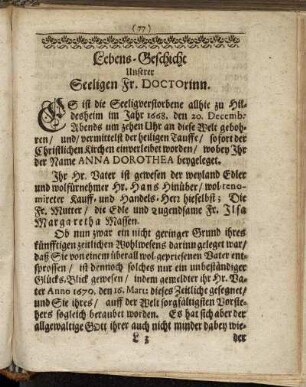 (77)
Lebens-Geschicht
Unserer
Seeligen Fr. DOCTOrinn.
ES ist die Seeligverstorbene allhie zu Hil-
desheim im Jahr 1668. den 20. Decemb:
Abends um zehen Uhr an diese Welt gebohr-
ren/ und/ vermittelst der heiligen Tauffe/ sofort der
Christlichen Kirchen einverleibet worden/ wobey Ihr
der Name ANNA DOROTHEA beygeleget.
Ihr Hr. Vater ist gewesen der weyland Edler
und wolfürnehmer Hr. Hans Hinüber/ wol reno-
mireter Kauff- und Handels-Herr hieselbst; Die
Fr. Mutter/ die Edle und tugendsame Fr. Ilsa
Margaretha Massen.
Ob nun zwar ein nicht geringer Grund ihres
künfftigen zeitlichen Wohlwesens darinn geleget war/
daß Sie von einem überall wol-gepriesenen Vater ent-
sprossen/ ist dennoch solches nur ein unbeständiger
Glücks-Blick gewesen/ indem gemeldter ihr Hr. Va-
ter Anno 1670. den 16. Mart: dieses Zeitliche gesegnet/
und Sie ihres/ auff der Welt sorgfältigsten Vorste-
hers sogleich beraubet worden. Es hat sich aber der
allgewaltige GOtt ihrer auch nicht minder dabey wie-
L 3
der